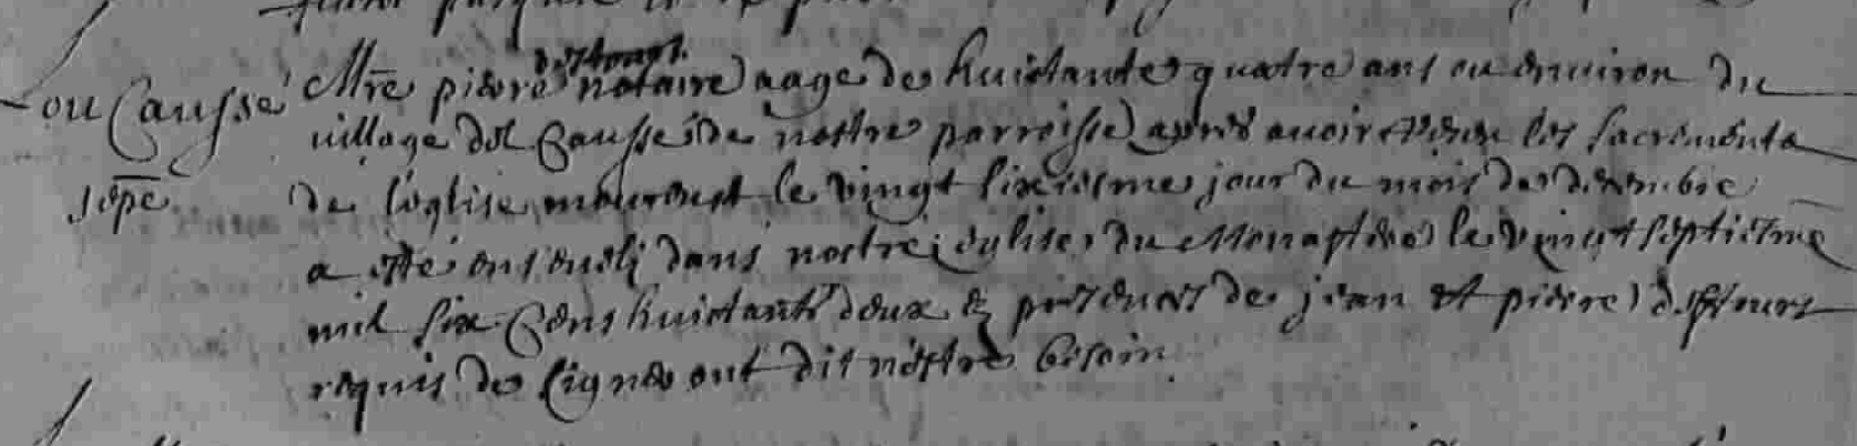 Lou Causse
sepe
destours
Mtre pierre notaire aage de huictante quatre ans ou environ du
village del Causse de nostre parroisse apres avoir receu les sacrements
de l'eglise mourust le vingt sixiesme jour du mois de decembre
a esté enseveli dans nostre eglise du Monastere le vingt septiesme
mil six cens huictante deux & presences de jean et pierre destours
requis de signer ont dit n'estre besoin